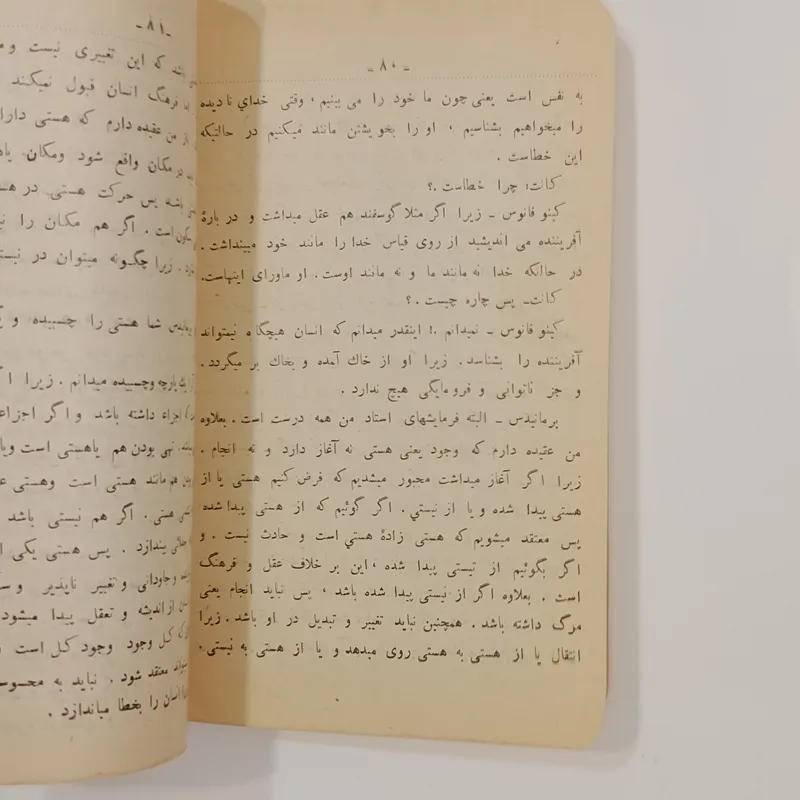 ـ ۸۰ ـ
به نفس است یعنی چون ما خود را می بینیم، وقتی خدای نادیده
را میخواهیم بشناسیم ، او را بخویشتن مانند میکنیم در حالتیکه
این خطاست .
کانت: چرا خطاست .؟
کینو فانوس ـ زیرا اگر مثلا گوسفند هم عقل میداشت و در بارهٔ
آفریننده می اندیشید از روی قیاس خدا را مانند خود میپنداشت .
در حالتکه خدا نه مانند ما و نه مانند اوست . او ماورای اینهاست.
کانت- پس چاره چیست .؟
کینو فانوس ـ نمیدانم .! اینقدر میدانم که انسان هیچگاه نمیتواند
آفریننده را بشناسد . زیرا او از خاك آمده و بخاك بر میگردد .
و جز ناتوانی و فرومایگی هیچ ندارد .
برمانیدس ـ البته فرمایشهای استاد من همه درست است . بعلاوه
من عقیده دارم که وجود یعنی هستی نه آغاز دارد و نه انجام .
زیرا اگر آغاز میداشت مجبور میشدیم که فرض کنیم هستی یا از
هستی پیدا شده و یا از نیستی . اگر گوئیم که از هستی پیدا شده
پس معتقد میشویم که هستی زادهٔ هستی است و حادث نیست . و
اگر بگوئیم از نیستی پیدا شده ، این بر خلاف عقل و فرهنگ
است . بعلاوه اگر از نیستی پیدا شده باشد ، پس نباید انجام یعنی
مرگ داشته باشد . همچنین نباید تغییر و تبدیل در او باشد . زیرا
انتقال یا از هستی به هستی روی میدهد و یا از هستی به نیستی .
ـ ۸۱ ـ
باشد که این تغییری نیست
فرهنگ انسان قبول نمیکند
من عقیده دارم که هستی
در مکان واقع شود ومکان
پس حرکت هستی در
سکون است . اگر هم مکان را
زیرا چگونه میتوان در
شما هستی را چسبیده و
پارچه وچسبیده میدانم . زیرا
اجزاء داشته باشد و اگر
تهی بودن هم یاهستی است
هم مانند هستی است وهستی
هستی . اگر هم نیستی باشد
بیندازد . پس هستی یکی
وجاودانی و تغییر ناپذیر
از اندیشه و تعقل پیدا میشود
که کل وجود وجود کل است
معتقد شود . نباید به
انسان را بخطا میاندازد .